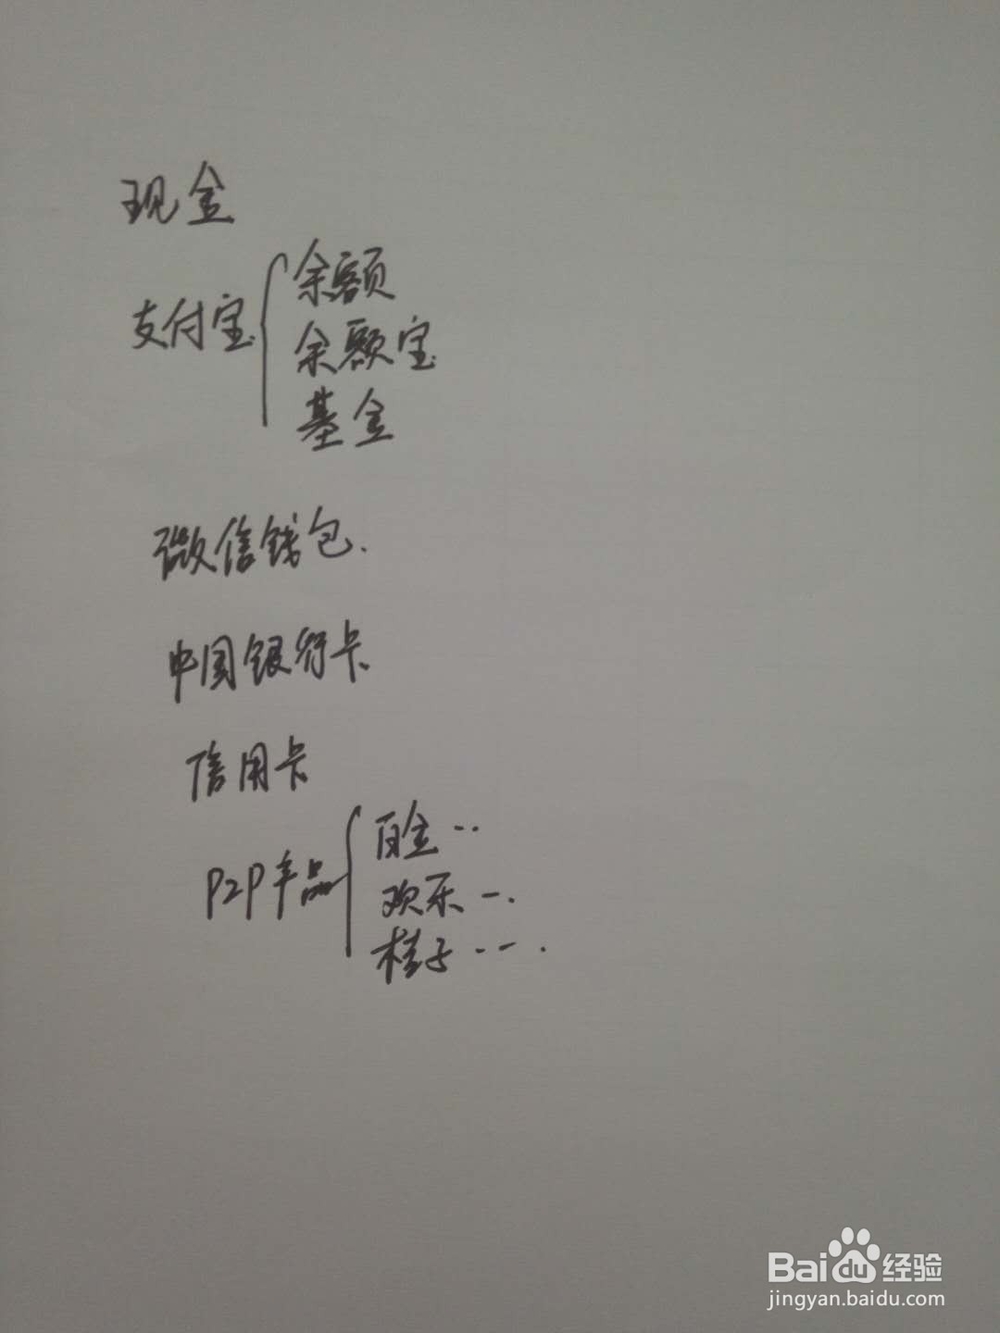 现金
支付宝
余额
余额宝
基金
微信钱包.
中国银行卡
信用卡
P2P产品
百金··
欢乐-·
桂子·--·
Baidu经验
jingyan.baidu.com